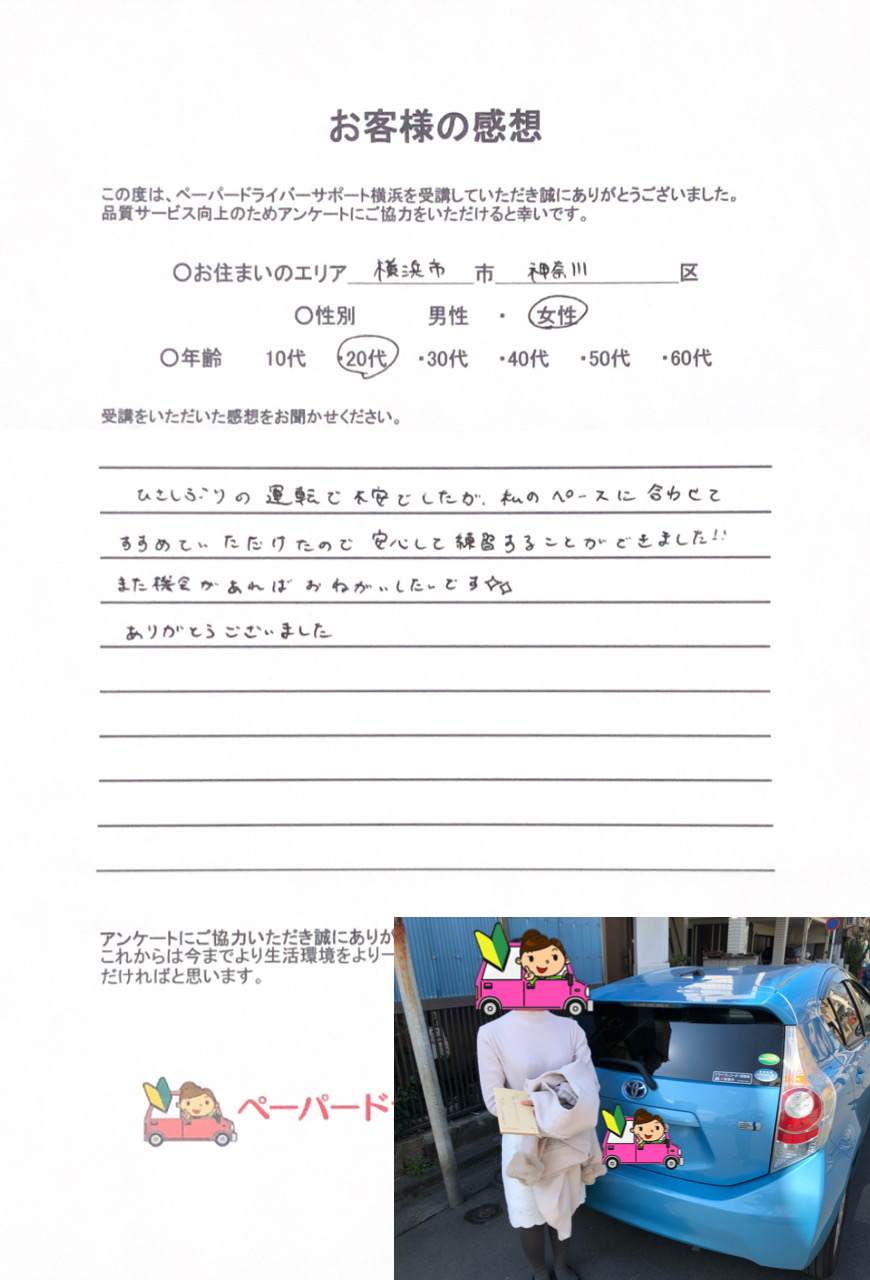 お客様の感想
この度は、ペーパードライバーサポート横浜を受講していただき誠にありがとうございました。
品質サービス向上のためアンケートにご協力をいただけると幸いです。
〇お住まいのエリア 横浜市 市 神奈川 区
〇性別 男性 ・ 女性
〇年齢 10代 ・20代 ・30代 ・40代 ・50代 ・60代
受講をいただいた感想をお聞かせください。
ひさしぶりの運転で不安でしたが、私のペースに合わせて
すすめていただけたので安心して練習することができました!!
また機会があればおねがいしたいです☆☆
ありがとうございました
アンケートにご協力いただき誠にありが
これからは今までより生活環境をより一
だければと思います。
ペーパード